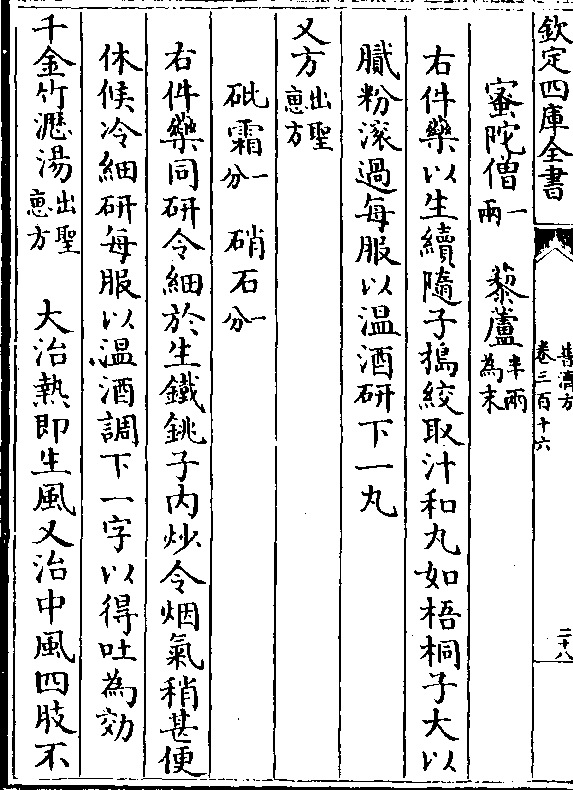 欽定四庫全書
普濟方
卷三百十六
二十八
蜜陀僧一兩 藜蘆半兩為末
右件藥以生續隨子搗絞取汁和丸如梧桐子大以
膩粉滚過每服以温酒研下一丸
又方出聖惠方
砒霜一分 硝石一分
右件藥同研令細於生鐵銚子内炒令烟氣稍甚便
休候冷細研每服以温酒調下一字以得吐為効
千金竹瀝湯出聖惠方 大治熱即生風又治中風四肢不